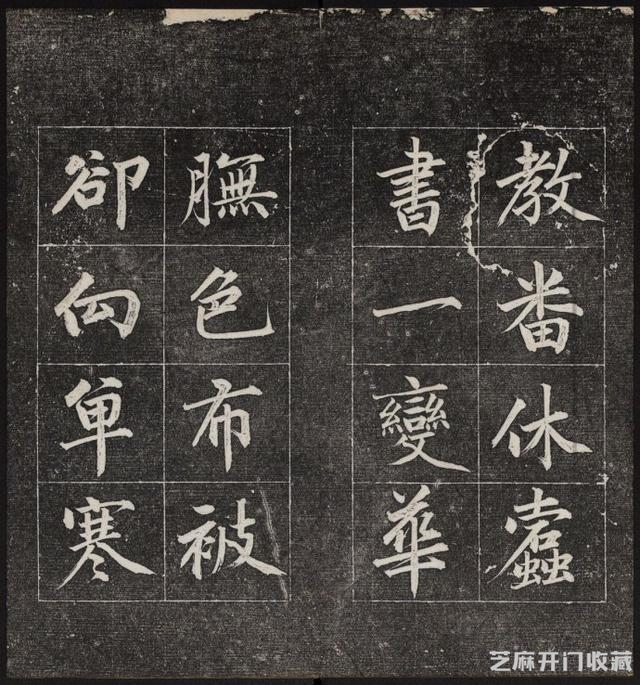 教番休蠹
書一變華
膴色布被
卻向單寒
芝麻开门收藏